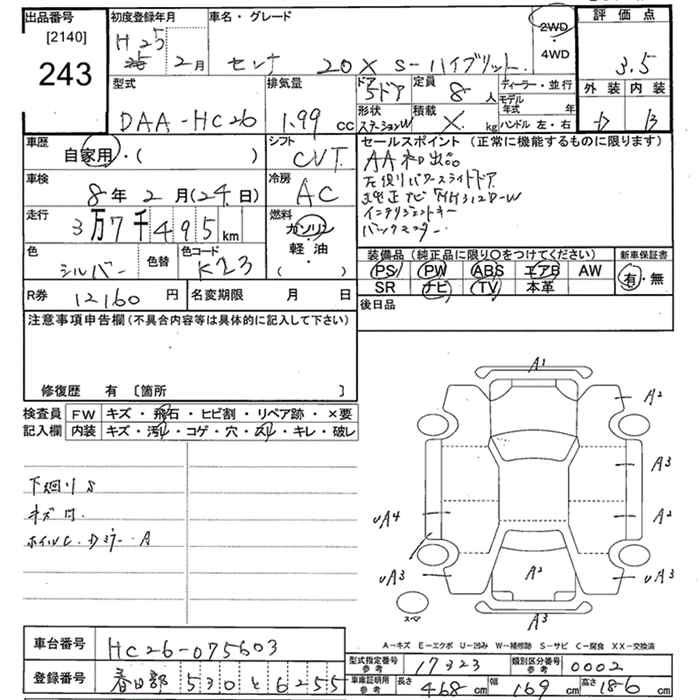 出品番号
[2140]
243
初度登録年月
H25
2月
車名・グレード
セレナ 20X S-ハイブリット
2WD
・
4WD
評価点
3.5
外装 内装
D B
型式
DAA-HC26
排気量
1.99 cc
ドア
5ドア
形状
ステーションW
定員
8 人
積載
X kg
ディーラー・並行
モデル年式 年
ハンドル 左・右
車歴
自家用・( )
シフト
CVT
セールスポイント (正常に機能するものに限ります)
AA初出品
左後りパワースライドドア
純正ナビ MM312D-W
インテリジェントキー
バックモニター
車検
8年2月(24日)
冷房
AC
走行
3万7千495km
燃料
ガソリン
軽・油
( ・ )
色
シルバー
色替
色コード
K23
装備品 (純正品に限り○をつけてください)
新車保証書
PS PW ABS エアB AW
SR ナビ TV 本革
有・無
R券 12160円
名変期限 月 日
後日品
注意事項申告欄(不具合内容等は具体的に記入して下さい)
修復歴 有 〔箇所 〕
検査員 FW キズ・飛石・ヒビ割・リペア跡・×要
記入欄 内装 キズ・汚れ・コゲ・穴・スレ・キレ・破レ
下廻りS
キズ凹
A1
A2
A3
A2
UA4
UA3
UA3
A2
A3
スペア
A-キズ E-エクボ U-凹み W-補修跡 S-サビ C-腐食 XX-交換済
車台番号 HC26-075603
登録番号 春日部 530 と 6255
型式指定番号 参考 17323
類別区分番号 参考 0002
車庫証明用 参考 長さ 468cm 幅 169cm 高さ 186cm